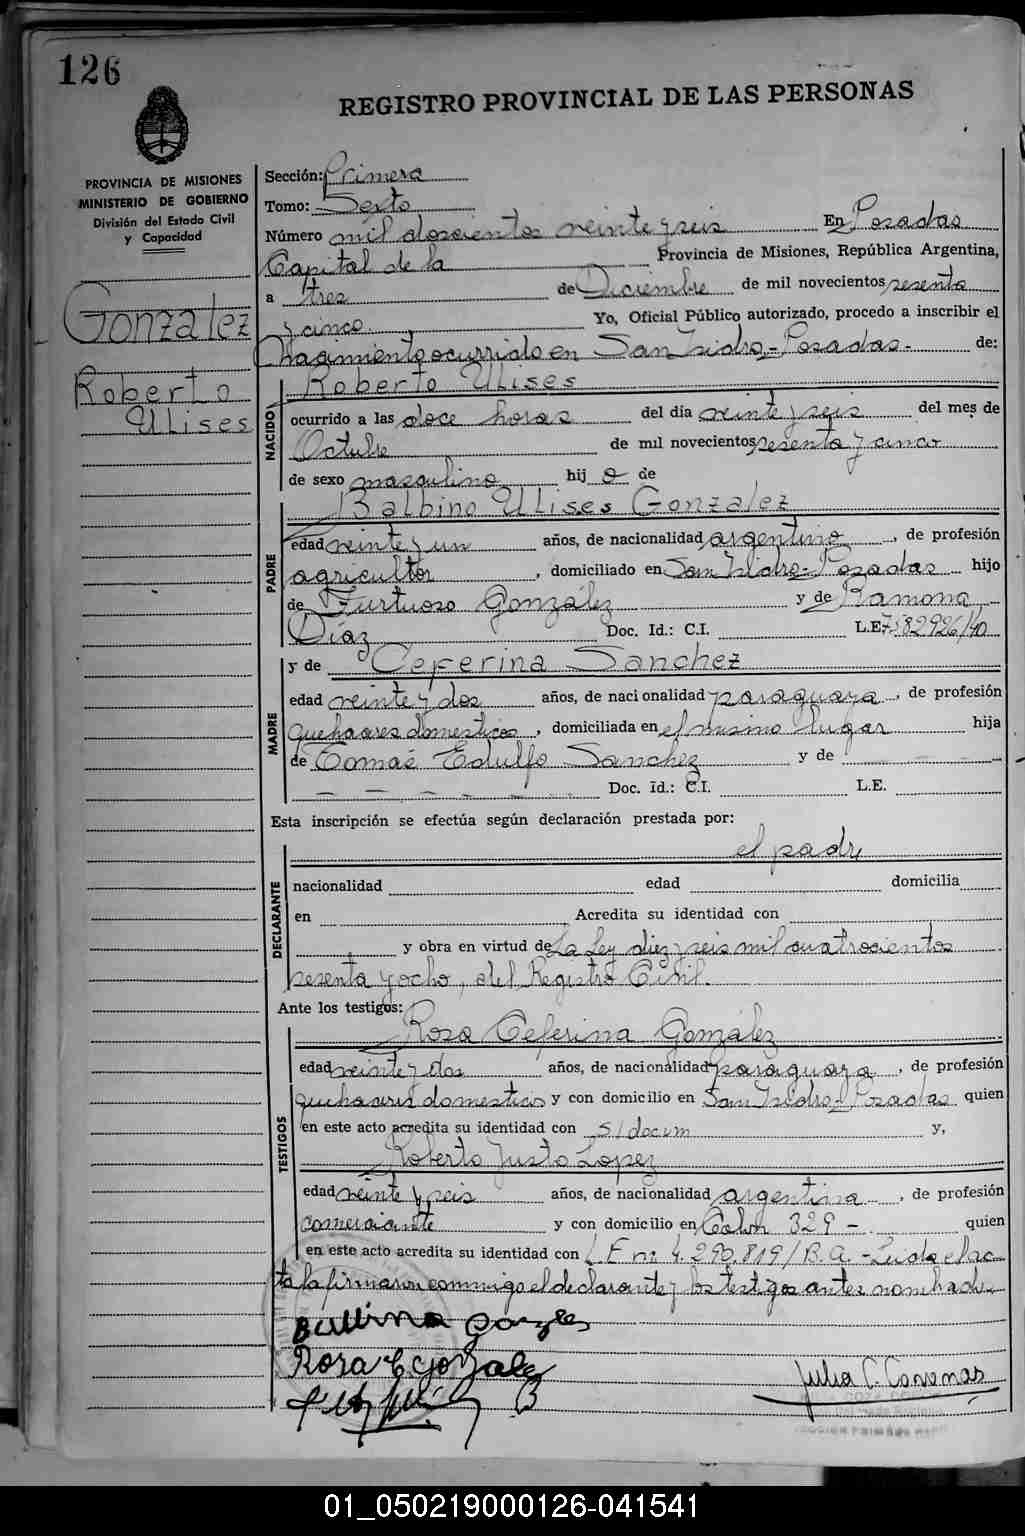 126
REGISTRO PROVINCIAL DE LAS PERSONAS
PROVINCIA DE MISIONES
MINISTERIO DE GOBIERNO
División del Estado Civil
y Capacidad
Gonzalez
Roberto
Ulises
Sección: Primera
Tomo: Sexto
Número mil doscientos veinte y seis En Posadas
Capital de la Provincia de Misiones, República Argentina,
a tres de Diciembre de mil novecientos sesenta
y cinco Yo, Oficial Público autorizado, procedo a inscribir el
Nacimiento ocurrido en San Isidro - Posadas - de:
NACIDO
Roberto Ulises
ocurrido a las doce horas del día veinte y seis del mes de
Octubre de mil novecientos sesenta y cinco
de sexo masculino hij o de
Balbino Ulises Gonzalez
PADRE
edad veinte y un años, de nacionalidad argentino, de profesión
agricultor, domiciliado en San Isidro - Posadas hijo
de Furtuoso González y de Ramona
Díaz Doc. Id.: C.I. L.E. 7582926/40
y de Ceferina Sanchez
MADRE
edad veinte y dos años, de nacionalidad paraguaya, de profesión
quehaceres domesticos, domiciliada en el mismo lugar hija
de Tomás Edulfo Sanchez y de - - -
- - - - - - Doc. Id.: C.I. L.E.
Esta inscripción se efectúa según declaración prestada por:
el padre
DECLARANTE
nacionalidad edad domicilia
en Acredita su identidad con
y obra en virtud de La Ley diez y seis mil cuatrocientos
sesenta y ocho, del Registro Civil.
Ante los testigos:
Rosa Ceferina González
TESTIGOS
edad veinte y dos años, de nacionalidad paraguaya, de profesión
quehaceres domesticos y con domicilio en San Isidro - Posadas quien
en este acto acredita su identidad con s/docum y,
Roberto Justo Lopez
edad veinte y seis años, de nacionalidad argentina, de profesión
comerciante y con domicilio en Colon 329 - quien
en este acto acredita su identidad con L.E nº 4.290.819/B.A. - Leida el ac
ta la firmaron conmigo el declarante y los testigos antes nombrados
Rosa C Gonzalez
Julia C.
01_050219000126-041541